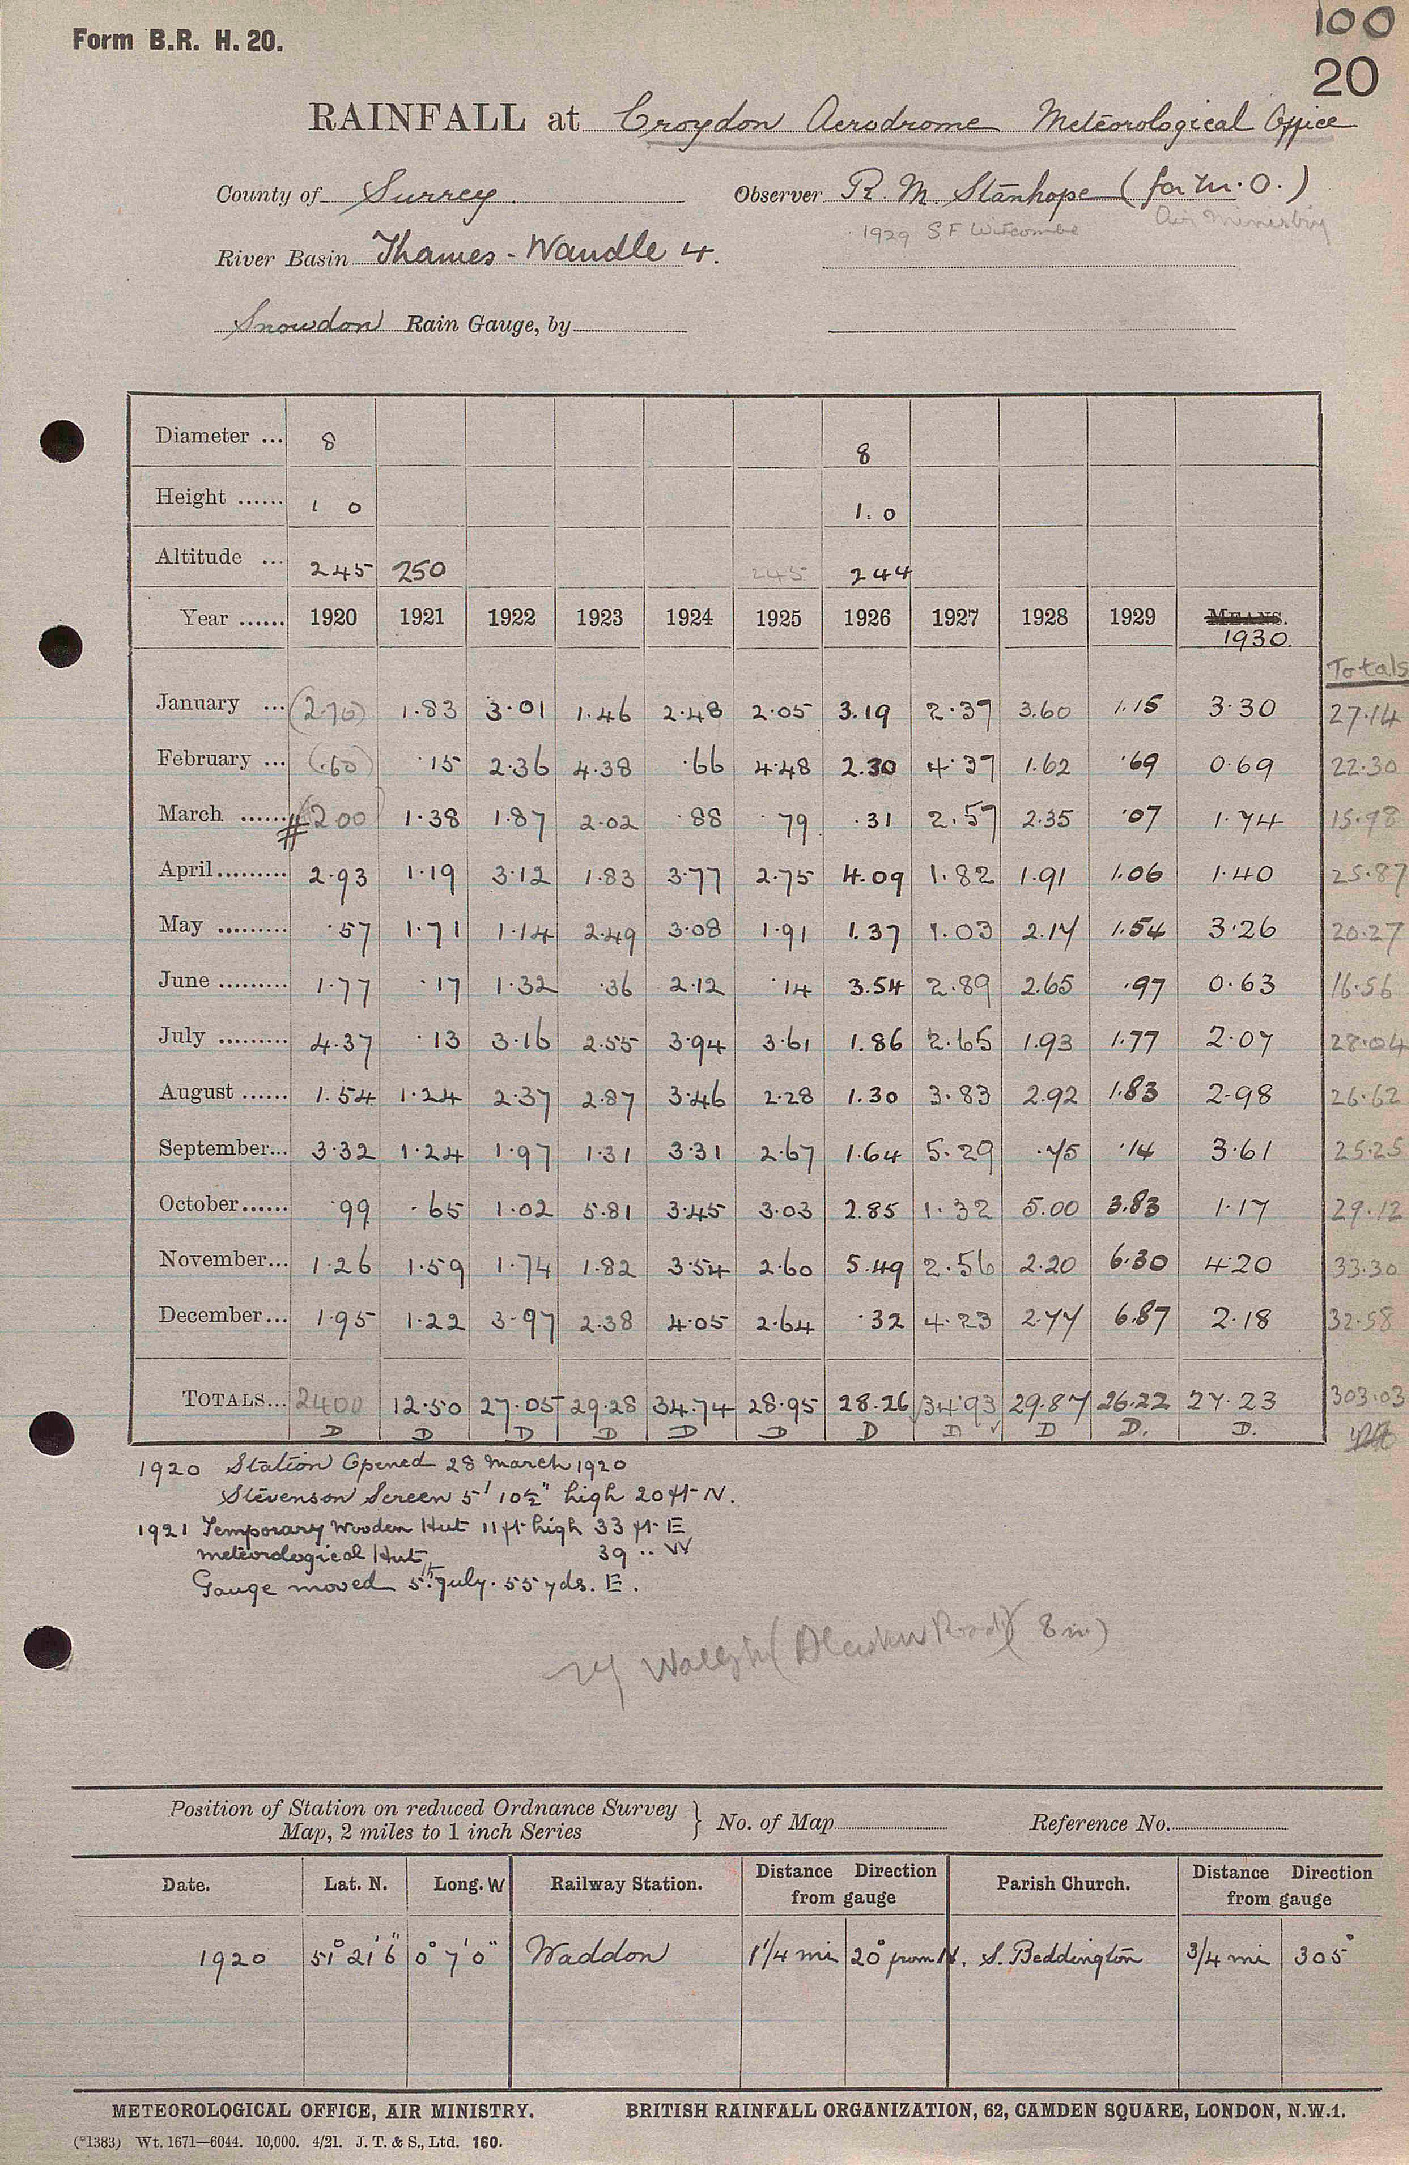 100
Form B.R. H. 20.
20
RAINFALL at Croydon Aerodrome Meteorological Office
County of Surrey. Observer R. M. Stanhope (for M.O.)
1929 S F Witcombe Air Ministry
River Basin Thames - Wandle 4.
Snowdon Rain Gauge, by
Diameter ... 8 8
Height ...... 1 0 1. 0
Altitude ... 245 250 245 244
Year ...... 1920 1921 1922 1923 1924 1925 1926 1927 1928 1929 MEANS.
1930.
Totals
January ... (2.70) 1.83 3.01 1.46 2.48 2.05 3.19 2.37 3.60 1.15 3.30 27.14
February ... (.60) .15 2.36 4.38 .66 4.48 2.30 4.37 1.62 .69 0.69 22.30
March ...... # (200) 1.38 1.87 2.02 .88 .79 .31 2.57 2.35 .07 1.74 15.98
April......... 2.93 1.19 3.12 1.83 3.77 2.75 4.09 1.82 1.91 1.06 1.40 25.87
May ......... .57 1.71 1.14 2.49 3.08 1.91 1.37 1.03 2.14 1.54 3.26 20.27
June ......... 1.77 .17 1.32 .36 2.12 .14 3.54 2.89 2.65 .97 0.63 16.56
July ......... 4.37 .13 3.16 2.55 3.94 3.61 1.86 2.65 1.93 1.77 2.07 28.04
August ...... 1.54 1.24 2.37 2.87 3.46 2.28 1.30 3.83 2.92 1.83 2.98 26.62
September... 3.32 1.24 1.97 1.31 3.31 2.67 1.64 5.29 .75 .14 3.61 25.25
October...... .99 .65 1.02 5.81 3.45 3.03 2.85 1.32 5.00 3.83 1.17 29.12
November... 1.26 1.59 1.74 1.82 3.54 2.60 5.49 2.56 2.20 6.30 4.20 33.30
December... 1.95 1.22 3.97 2.38 4.05 2.64 .32 4.23 2.77 6.87 2.18 32.58
TOTALS... 2400 12.50 27.05 29.28 34.74 28.95 28.26 34.93 29.87 26.22 27.23 303.03
D D D D D D D D ✓ D D. D.
1920 Station Opened 28 March 1920
Stevenson Screen 5' 10½" high 20 ft N.
1921 Temporary Wooden Hut 11 ft high 33 ft E
meteorological Hut 39 .. W
Gauge moved 5th July. 55 yds. E.
(8 in)
Position of Station on reduced Ordnance Survey
Map, 2 miles to 1 inch Series } No. of Map Reference No.
Date. Lat. N. Long. W Railway Station. Distance Direction from gauge Parish Church. Distance Direction from gauge
1920 51° 21' 6" 0° 7' 0" Waddon 1 1/4 mi 20° from N. S. Beddington 3/4 mi 305°
METEOROLOGICAL OFFICE, AIR MINISTRY. BRITISH RAINFALL ORGANIZATION, 62, CAMDEN SQUARE, LONDON, N.W.1.
(*1383) Wt. 1671—6044. 10,000. 4/21. J. T. & S., Ltd. 160.